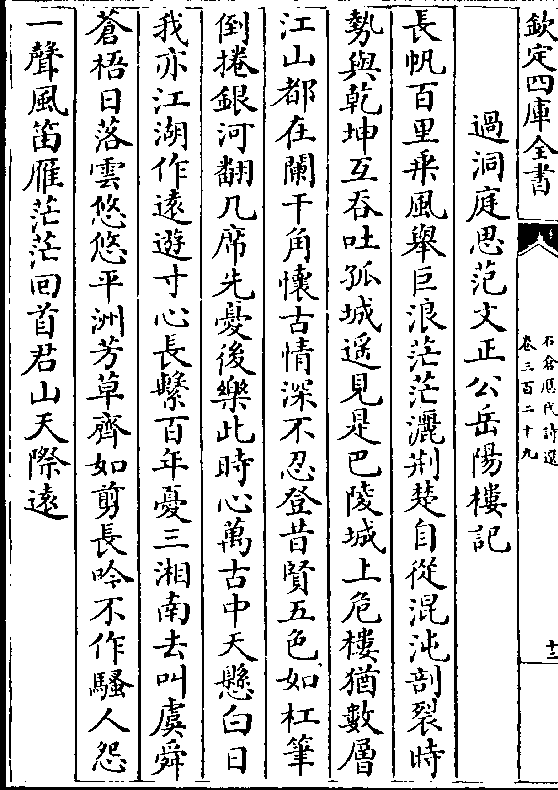 欽定四庫全書
石倉歷代詩選
卷三百二十九
十三
過洞庭思范文正公岳陽樓記
長帆百里乘風舉巨浪茫茫灑荆楚自從混沌剖裂時
勢與乾坤互吞吐孤城遙見是巴陵城上危樓猶數層
江山都在闌干角懷古情深不忍登昔賢五色如杠筆
倒捲銀河翻几席先憂後樂此時心萬古中天懸白日
我亦江湖作遠遊寸心長繫百年憂三湘南去叫虞舜
蒼梧日落雲悠悠平洲芳草齊如剪長吟不作騷人怨
一聲風笛雁茫茫回首君山天際遠